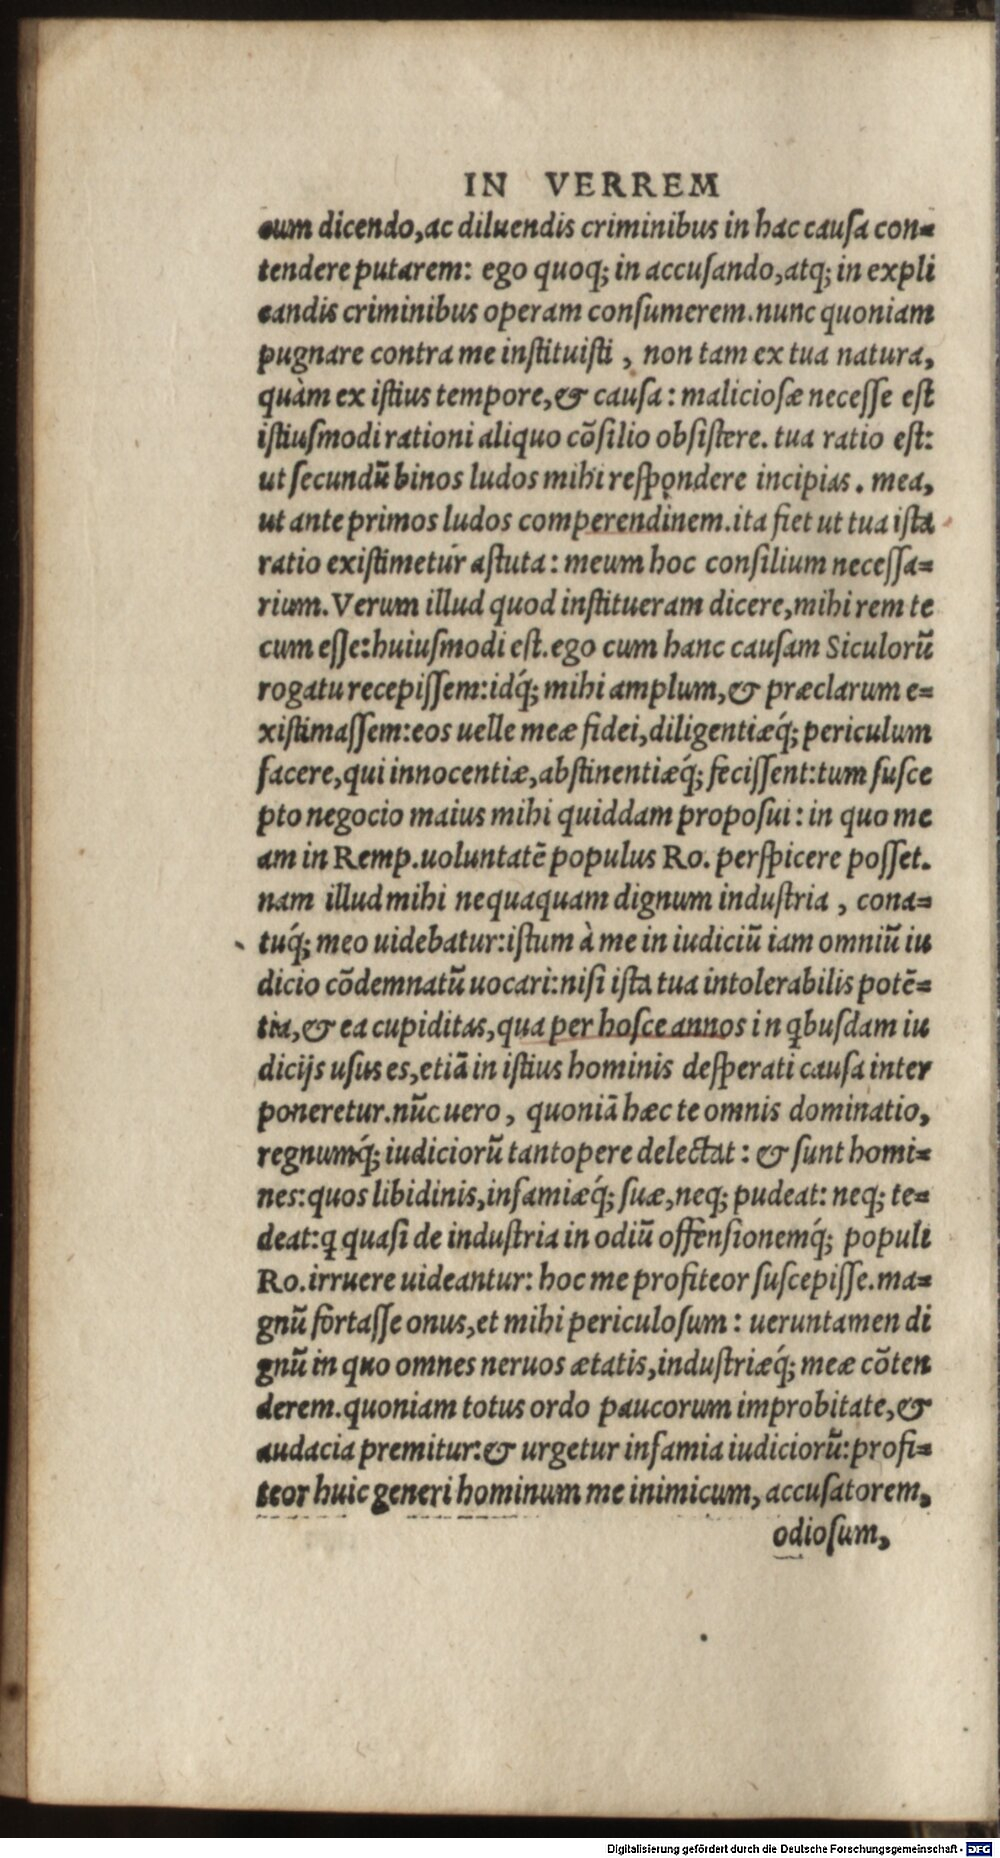 IN VERREM
cum dicendo,ac diluendis criminibus in hac causa con=
tendere putarem: ego quoq; in accusando,atq; in expli
candis criminibus operam consumerem.nunc quoniam
pugnare contra me instituisti, non tam ex tua natura,
quàm ex istius tempore,& causa: maliciosæ necesse est
istiusmodi rationi aliquo cõsilio obsistere. tua ratio est:
ut secundũ binos ludos mihi respondere incipias. mea,
ut ante primos ludos comperendinem.ita fiet ut tua ista
ratio existimetur astuta: meum hoc consilium necessa=
rium. Verum illud quod institueram dicere,mihi rem te
cum esse:huiusmodi est.ego cum hanc causam Siculorũ
rogatu recepissem:idq́; mihi amplum,& præclarum e=
xistimassem:eos uelle meæ fidei,diligentiæq́; periculum
facere,qui innocentiæ,abstinentiæq́; fecissent:tum susce
pto negocio maius mihi quiddam proposui: in quo me
am in Remp.uoluntatẽ populus Ro. perspicere posset.
nam illud mihi nequaquam dignum industria, cona=
tuq́; meo uidebatur:istum à me in iudiciũ iam omniũ iu
dicio cõdemnatũ uocari:nisi ista tua intolerabilis potẽ=
tia,& ea cupiditas,qua per hosce annos in qbusdam iu
dicijs usus es,etiã in istius hominis desperati causa inter
poneretur.nũc uero, quoniã hæc te omnis dominatio,
regnumq́; iudiciorũ tantopere delectat: & sunt homi=
nes:quos libidinis,infamiæq́; suæ,neq; pudeat: neq; te=
deat:q quasi de industria in odiũ offensionemq́; populi
Ro.irruere uideantur: hoc me profiteor suscepisse.ma=
gnũ fortasse onus,et mihi periculosum: ueruntamen di
gnũ in quo omnes neruos ætatis,industriæq́; meæ cõten
derem.quoniam totus ordo paucorum improbitate,&
audacia premitur:& urgetur infamia iudiciorũ:profi=
teor huic generi hominum me inimicum, accusatorem,
odiosum,
Digitalisierung gefördert durch die Deutsche Forschungsgemeinschaft - DFG